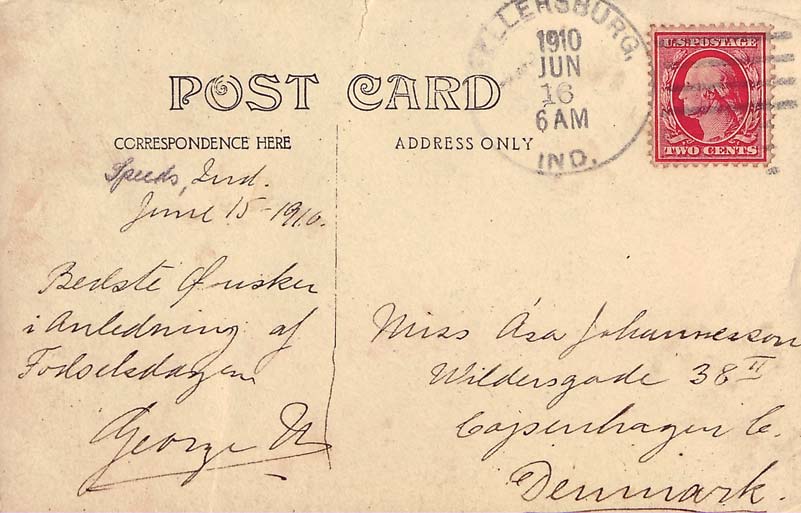 SELLERSBURG,
1910
JUN
16
6 AM
IND.
U.S. POSTAGE
TWO CENTS
POST CARD
CORRESPONDENCE HERE
ADDRESS ONLY
Speeds, Ind.
June 15-1910.
Bedste Ønsker
i Anledning af
Fodselsdagen
George
Miss Ása Johannesson
Wildersgade 38 II
Copenhagen C.
Denmark.